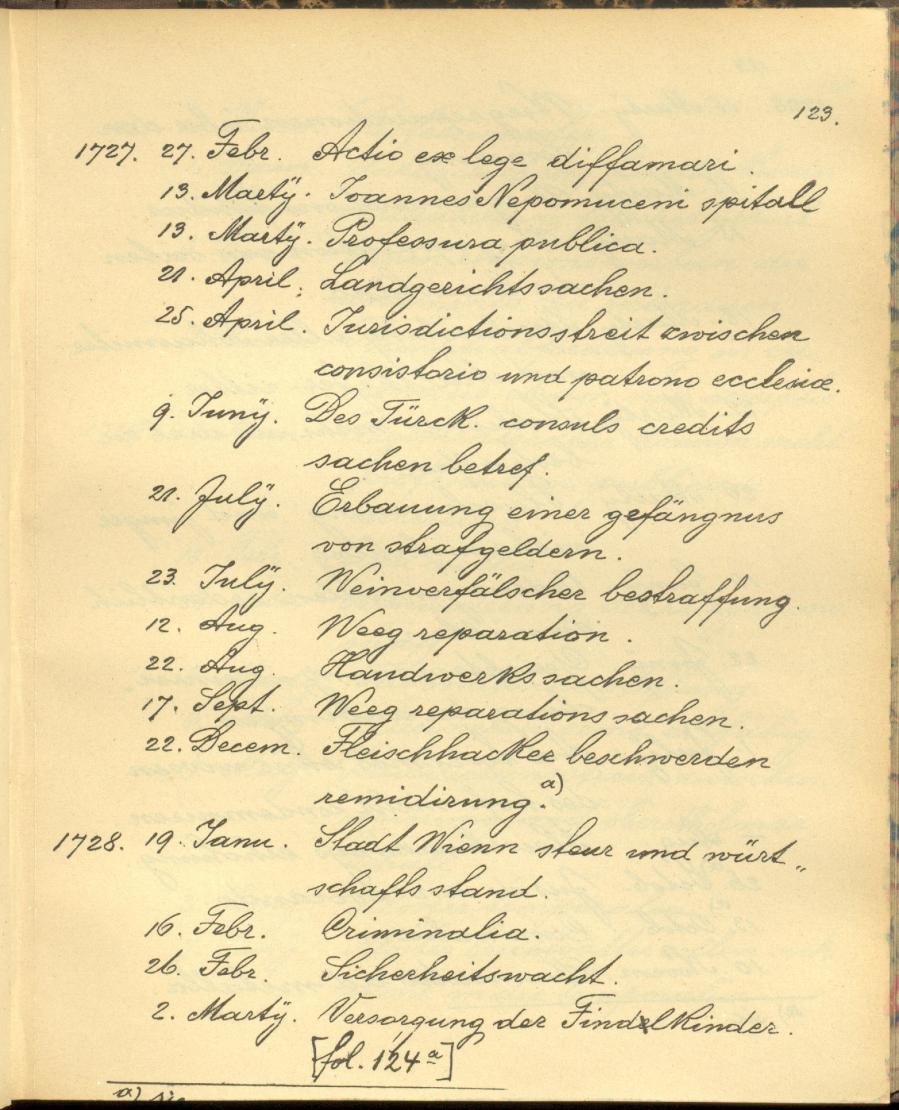 123.
1727. 27. Febr. Actio ex lege diffamari.
13. Martÿ. Joannes Nepomuceni spitall
13. Martÿ. Professura publica.
21. April. Landgerichtssachen.
25. April. Jurisdictionsstreit zwischen
consistorio und patrono ecclesiæ.
9. Junÿ. Des Türck. consuls credits
sachen betref.
21. Julÿ. Erbauung einer gefängnus
von strafgeldern.
23. Julÿ. Weinverfälscher bestraffung.
12. Aug. Weeg reparation.
22. Aug. Handwerkssachen.
17. Sept. Weeg reparationssachen.
22. Decem. Fleischhacker beschwerden
remidirung.a)
1728. 19. Janu. Stadt Wienn steur und würt„
schaftsstand.
16. Febr. Criminalia.
26. Febr. Sicherheitswacht.
2. Martÿ. Versorgung der Findelkinder.
[fol. 124a]
a) sic